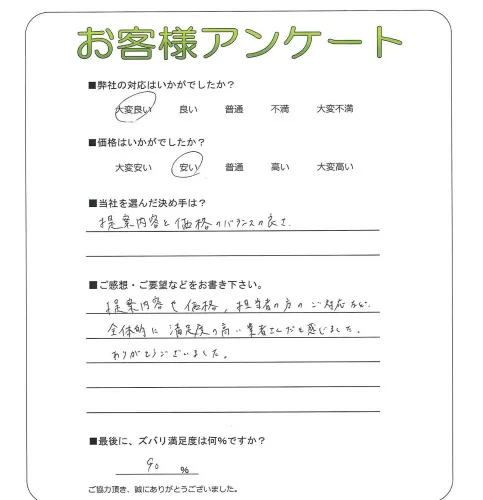 お客様アンケート
■弊社の対応はいかがでしたか？
大変良い 良い 普通 不満 大変不満
■価格はいかがでしたか？
大変安い 安い 普通 高い 大変高い
■当社を選んだ決め手は？
提案内容と価格のバランスの良さ.
■ご感想・ご要望などをお書き下さい。
提案内容や価格，担当者の方のご対応など.
全体的に満足度の高い業者さんだと感じました。
ありがとうございました。
■最後に、ズバリ満足度は何%ですか？
90 %
ご協力頂き、誠にありがとうございました。